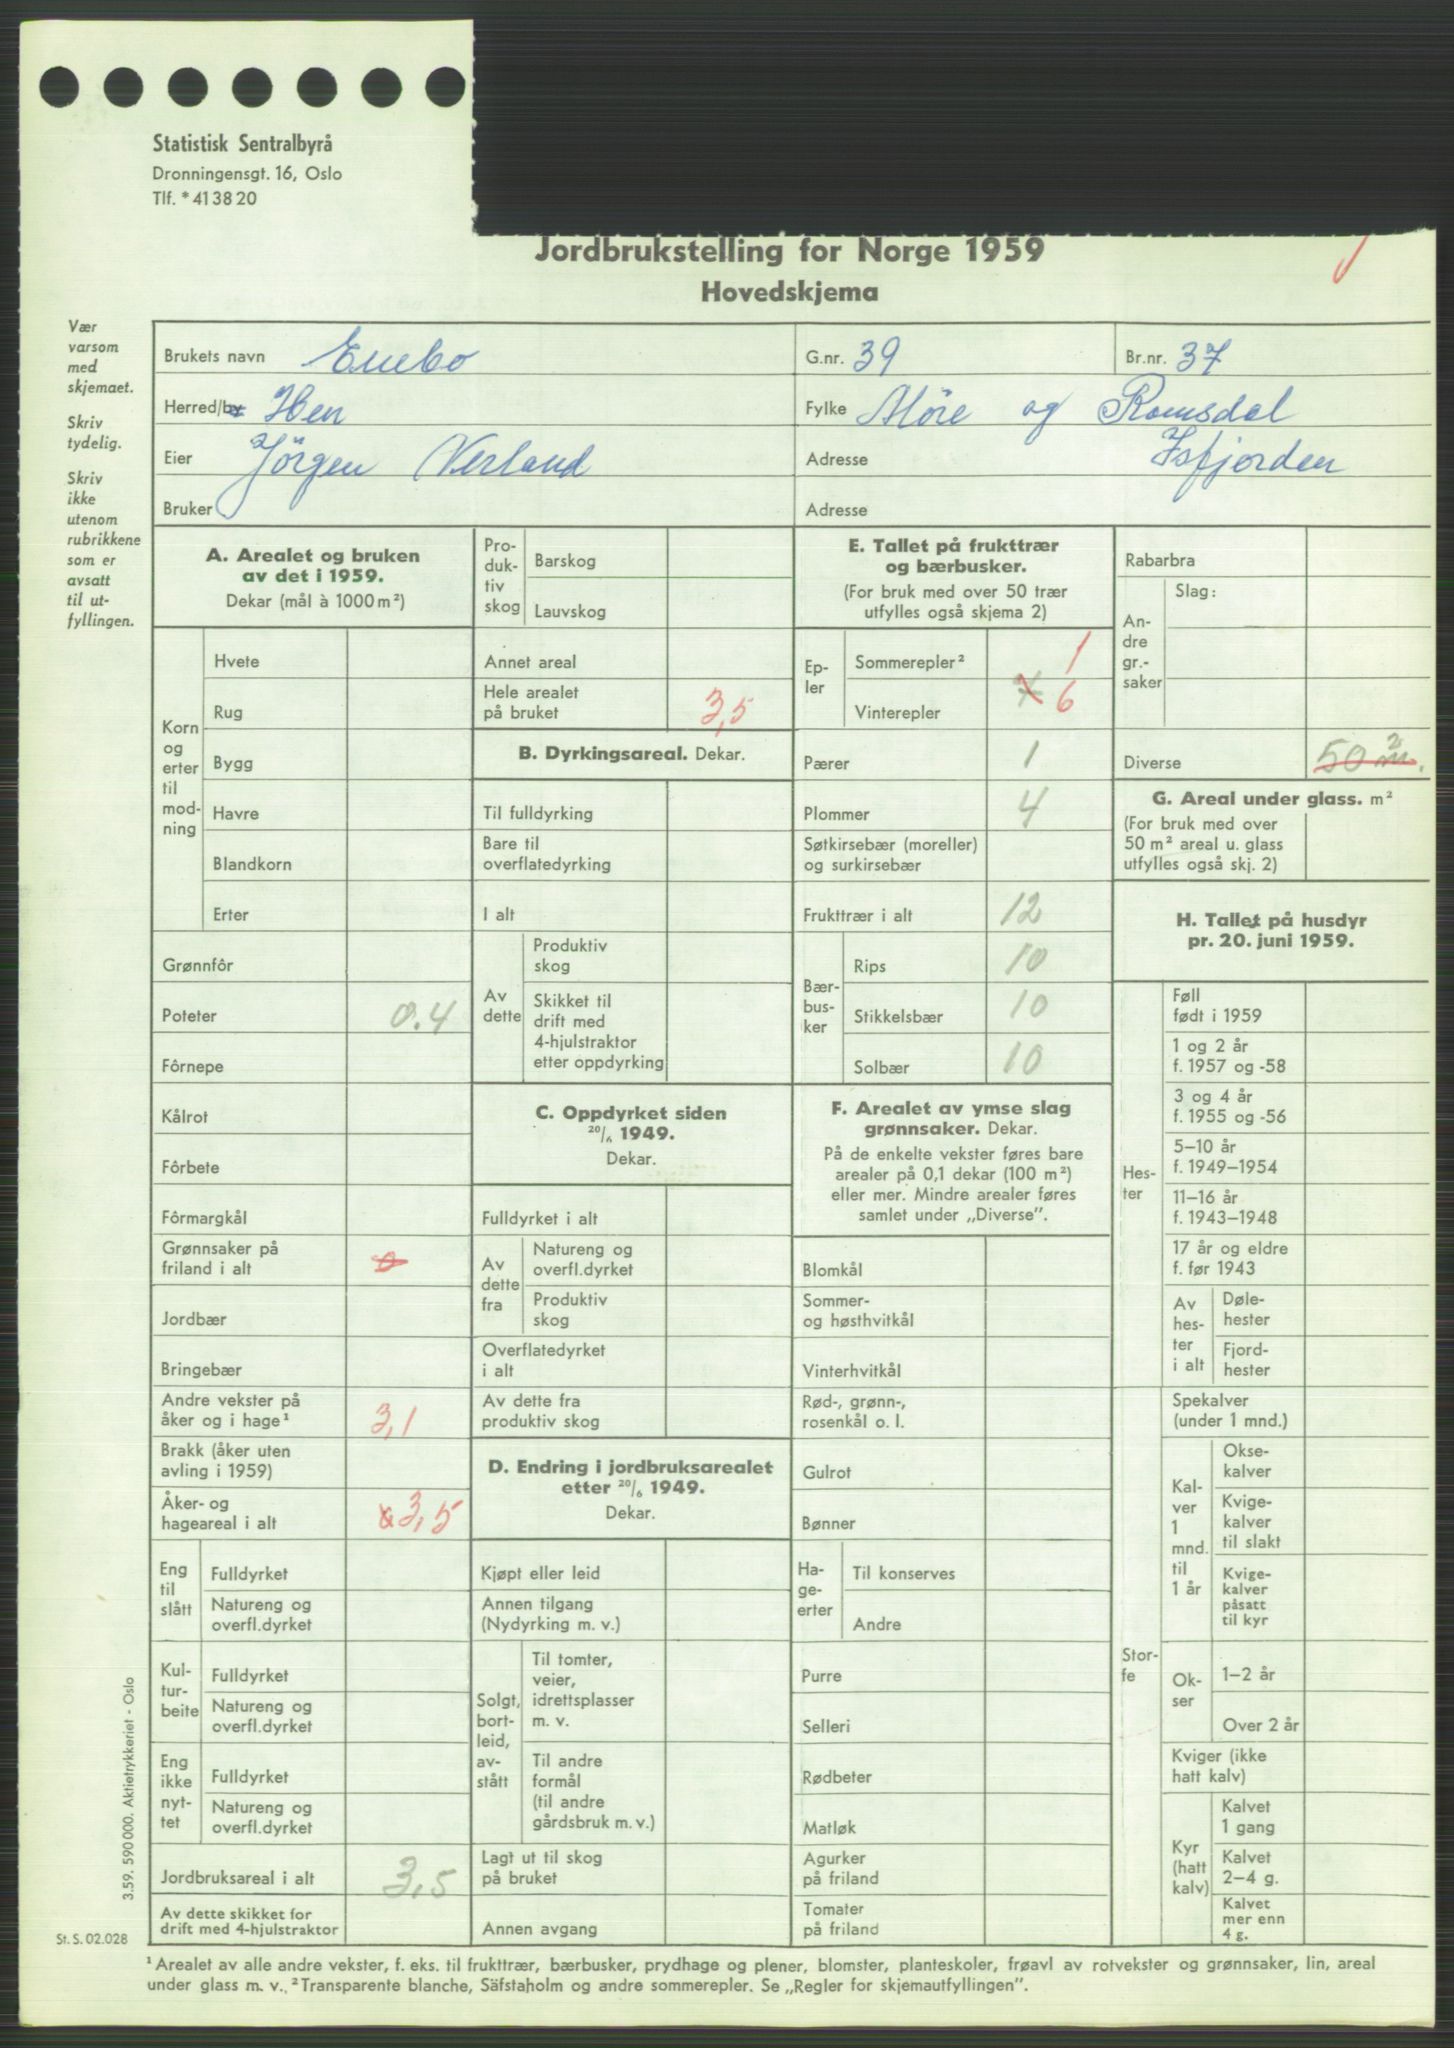 Statistisk Sentralbyrå
Dronningensgt. 16, Oslo
Tlf. * 41 38 20
Jordbrukstelling for Norge 1959
Hovedskjema
Vær
varsom
med
skjemaet.
Skriv
tydelig.
Skriv
ikke
utenom
rubrikkene
som er
avsatt
til ut-
fyllingen.
Brukets navn Enebo G.nr. 39 Br.nr. 37
Herred/by Hen Fylke Møre og Romsdal
Eier Jörgen Verland Adresse Isfjorden
Bruker Adresse
A. Arealet og bruken
av det i 1959.
Dekar (mål à 1000 m²)
Korn
og
erter
til
mod-
ning
Hvete
Rug
Bygg
Havre
Blandkorn
Erter
Grønnfôr
Poteter 0.4
Fôrnepe
Kålrot
Fôrbete
Fôrmargkål
Grønnsaker på
friland i alt 0
Jordbær
Bringebær
Andre vekster på
åker og i hage¹ 3,1
Brakk (åker uten
avling i 1959)
Åker- og
hageareal i alt 3,5
Eng
til
slått
Fulldyrket
Natureng og
overfl.dyrket
Kul-
tur-
beite
Fulldyrket
Natureng og
overfl.dyrket
Eng
ikke
nyt-
tet
Fulldyrket
Natureng og
overfl.dyrket
Jordbruksareal i alt 3,5
Av dette skikket for
drift med 4-hjulstraktor
Pro-
duk-
tiv
skog
Barskog
Lauvskog
Annet areal
Hele arealet
på bruket 3,5
B. Dyrkingsareal. Dekar.
Til fulldyrking
Bare til
overflatedyrking
I alt
Av
dette
Produktiv
skog
Skikket til
drift med
4-hjulstraktor
etter oppdyrking
C. Oppdyrket siden
20/6 1949.
Dekar.
Fulldyrket i alt
Av
dette
fra
Natureng og
overfl.dyrket
Produktiv
skog
Overflatedyrket
i alt
Av dette fra
produktiv skog
D. Endring i jordbruksarealet
etter 20/6 1949.
Dekar.
Kjøpt eller leid
Annen tilgang
(Nydyrking m. v.)
Solgt,
bort-
leid,
av-
stått
Til tomter,
veier,
idrettsplasser
m. v.
Til andre
formål
(til andre
gårdsbruk m. v.)
Lagt ut til skog
på bruket
Annen avgang
E. Tallet på frukttrær
og bærbusker.
(For bruk med over 50 trær
utfylles også skjema 2)
Ep-
ler
Sommerepler² 1
Vinterepler 7 6
Pærer 1
Plommer 4
Søtkirsebær (moreller)
og surkirsebær
Frukttrær i alt 12
Bær-
bus-
ker
Rips 10
Stikkelsbær 10
Solbær 10
F. Arealet av ymse slag
grønnsaker. Dekar.
På de enkelte vekster føres bare
arealer på 0,1 dekar (100 m²)
eller mer. Mindre arealer føres
samlet under „Diverse”.
Blomkål
Sommer-
og høsthvitkål
Vinterhvitkål
Rød-, grønn-,
rosenkål o. l.
Gulrot
Bønner
Ha-
ge-
erter
Til konserves
Andre
Purre
Selleri
Rødbeter
Matløk
Agurker
på friland
Tomater
på friland
Rabarbra
An-
dre
gr.-
saker
Slag:
Diverse 50 m².
G. Areal under glass. m²
(For bruk med over
50 m² areal u. glass
utfylles også skj. 2)
H. Tallet på husdyr
pr. 20. juni 1959.
Hes-
ter
Føll
født i 1959
1 og 2 år
f. 1957 og -58
3 og 4 år
f. 1955 og -56
5–10 år
f. 1949–1954
11–16 år
f. 1943–1948
17 år og eldre
f. før 1943
Av
hes-
ter
i alt
Døle-
hester
Fjord-
hester
Stor-
fe
Spekalver
(under 1 mnd.)
Kal-
ver
1
mnd.
til
1 år
Okse-
kalver
Kvige-
kalver
til slakt
Kvige-
kalver
påsatt
til kyr
Ok-
ser
1–2 år
Over 2 år
Kviger (ikke
hatt kalv)
Kyr
(hatt
kalv)
Kalvet
1 gang
Kalvet
2–4 g.
Kalvet
mer enn
4 g.
3.59. 590 000. Aktietrykkeriet - Oslo
St. S. 02.028
¹ Arealet av alle andre vekster, f. eks. til frukttrær, bærbusker, prydhage og plener, blomster, planteskoler, frøavl av rotvekster og grønnsaker, lin, areal
under glass m. v. ² Transparente blanche, Säfstaholm og andre sommerepler. Se „Regler for skjemautfyllingen”.